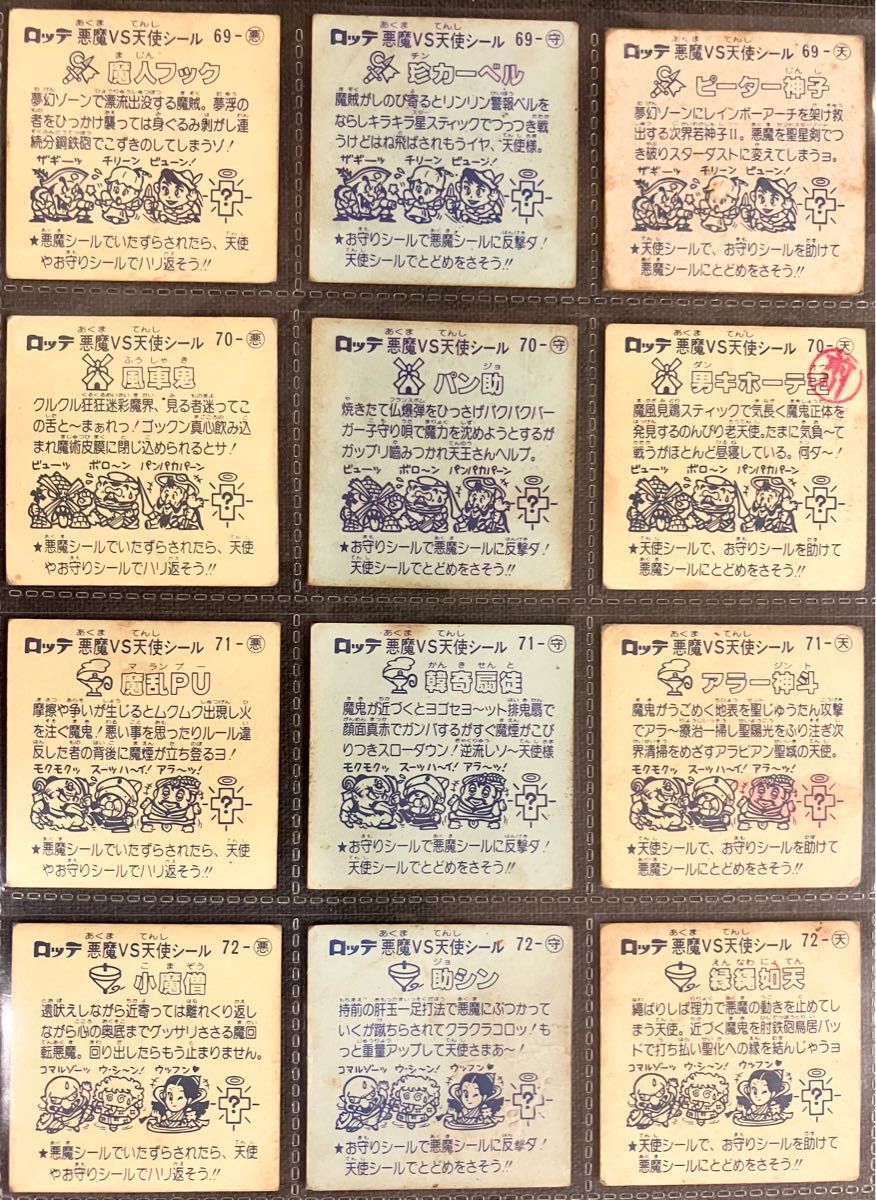 ロッテ 悪魔VS天使シール 69-悪
魔人フック
夢幻ゾーンで漂流出没する魔賊。夢浮の
者をひっかけ襲っては身ぐるみ剥がし連
続分鋼鉄砲でこずきのしてしまうゾ!
ザギーッ チリーン ピューン!
?
★悪魔シールでいたずらされたら、天使
やお守りシールでハリ返そう!!
ロッテ 悪魔VS天使シール 69-守
珍カーベル
魔賊がしのび寄るとリンリン警報ベルを
ならしキラキラ星スティックでつっつき戦
うけどはね飛ばされもうイヤ、天使様。
ザギーッ チリーン ピューン!
?
★お守りシールで悪魔シールに反撃ダ!
天使シールでとどめをさそう!!
ロッテ 悪魔VS天使シール 69-天
ピーター神子
夢幻ゾーンにレインボーアーチを架け救
出する次界若神子II。悪魔を聖星剣でつ
き破りスターダストに変えてしまうヨ。
ザギーッ チリーン ピューン!
?
★天使シールで、お守りシールを助けて
悪魔シールにとどめをさそう!!
ロッテ 悪魔VS天使シール 70-悪
風車鬼
クルクル狂狂迷彩魔界、見る者迷ってこ
の舌と〜まぁれっ!ゴックン真心飲み込
まれ魔術皮膜に閉じ込められるとサ!
ビューッ ポロ〜ン パンパカパーン
?
★悪魔シールでいたずらされたら、天使
やお守りシールでハリ返そう!!
ロッテ 悪魔VS天使シール 70-守
パン助
焼きたて仏爆弾をひっさげパクパクバー
ガー子守り唄で魔力を沈めようとするが
ガップリ噛みつかれ天王さんヘルプ。
ビューッ ポロ〜ン パンパカパーン
?
★お守りシールで悪魔シールに反撃ダ!
天使シールでとどめをさそう!!
ロッテ 悪魔VS天使シール 70-天
男キホーテ
魔風見鶏スティックで気長く魔鬼正体を
発見するのんびり老天使。たまに気負〜て
戦うがほとんど昼寝している。何ダ〜!
ビューッ ポロ〜ン パンパカパーン
?
★天使シールで、お守りシールを助けて
悪魔シールにとどめをさそう!!
ロッテ 悪魔VS天使シール 71-悪
魔乱PU
摩擦や争いが生じるとムクムク出現し火
を注ぐ魔鬼!悪い事を思ったりルール違
反した者の背後に魔煙が立ち登るヨ!
モクモクッ スーッハ〜イ! アラ〜ッ!
?
★悪魔シールでいたずらされたら、天使
やお守りシールでハリ返そう!!
ロッテ 悪魔VS天使シール 71-守
韓奇扇徒
魔鬼が近づくとヨゴセヨ〜ット排鬼扇で
顔面真赤でガンバするがすぐ魔煙がこび
りつきスローダウン!逆流しソ〜天使様
モクモクッ スーッハ〜イ! アラ〜ッ!
?
★お守りシールで悪魔シールに反撃ダ!
天使シールでとどめをさそう!!
ロッテ 悪魔VS天使シール 71-天
アラー神斗
魔鬼がうごめく地表を聖じゅうたん攻撃
でアラ〜療治一掃し聖陽光をふり注ぎ次
界清掃をめざすアラビアン聖域の天使。
モクモクッ スーッハ〜イ! アラ〜ッ!
?
★天使シールで、お守りシールを助けて
悪魔シールにとどめをさそう!!
ロッテ 悪魔VS天使シール 72-悪
小魔僧
遠吠えしながら近寄っては離れくり返し
ながら心の奥底までグッサリささる魔回
転悪魔。回り出したらもう止まりません。
コマルゾーッ ウ・シ〜ン! ウッフン♥
?
★悪魔シールでいたずらされたら、天使
やお守りシールでハリ返そう!!
ロッテ 悪魔VS天使シール 72-守
助シン
持前の肝玉一足打法で悪魔にぶつかって
いくが蹴ちらされてクラクラコロッ!も
っと重量アップして天使さまあ〜!
コマルゾーッ ウ・シ〜ン! ウッフン♥
?
★お守りシールで悪魔シールに反撃ダ!
天使シールでとどめをさそう!!
ロッテ 悪魔VS天使シール 72-天
縁縄如天
縄ばりしば理力で悪魔の動きを止めてし
まう天使。近づく魔鬼を肘鉄砲鳥居バッ
ドで打ち払い聖化への縁を結んじゃうヨ
コマルゾーッ ウ・シ〜ン! ウッフン♥
?
★天使シールで、お守りシールを助けて
悪魔シールにとどめをさそう!!